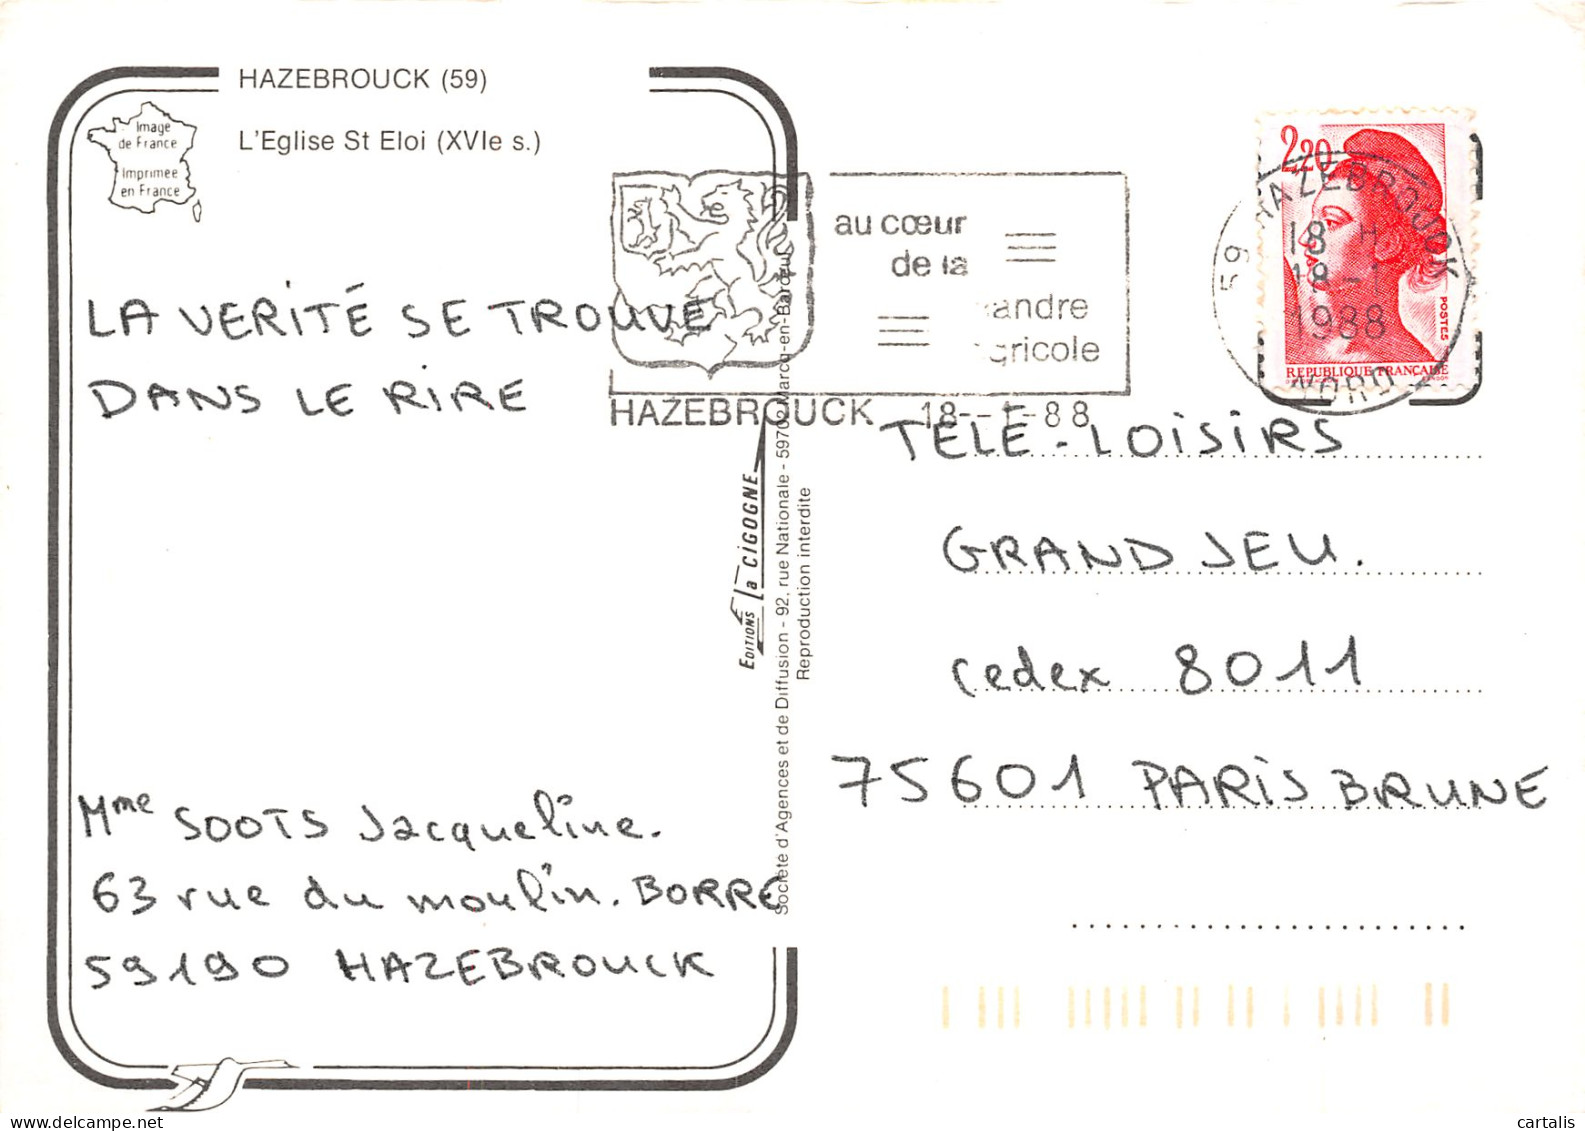 HAZEBROUCK (59)
L'Eglise St Eloi (XVIe s.)
Image
de France
Imprimée
en France
LA VERITÉ SE TROUVE
DANS LE RIRE
Mme SOOTS Jacqueline.
63 rue du moulin. BORRE
59190 HAZEBROUCK
EDITIONS la CIGOGNE
Société d'Agences et de Diffusion - 92, rue Nationale - 59702 Marcq-en-Baroeul
Reproduction interdite
au cœur
de la
andre
gricole
HAZEBROUCK 18--1-88
2,20
POSTES
REPUBLIQUE FRANÇAISE
59 HAZEBROUCK
18 H
18-1
1988
NORD
TELE-LOISIRS
GRAND JEU.
cedex 8011
75601 PARIS BRUNE
cartalis